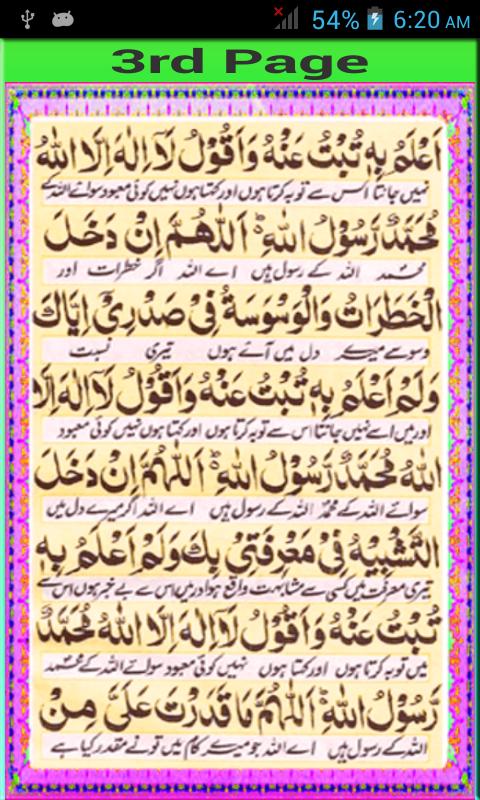 54% 6:20 AM
3rd Page
اَعْلَمُ بِهٖ تُبْتُ عَنْهُ وَاَقُوْلُ لَآ اِلٰهَ اِلَّا اللّٰهُ
نہیں جانتا اس سے توبہ کرتا ہوں اور کہتا ہوں نہیں کوئی معبود سوائے اللہ کے
مُحَمَّدٌ رَّسُوْلُ اللّٰهِ ؕ اَللّٰهُمَّ اِنْ دَخَلَ
محمد اللہ کے رسول ہیں اے اللہ اگر خطرات اور
الْخَطَرَاتُ وَالْوَسْوَسَةُ فِیْ صَدْرِیْ اِیَّاكَ
وسوسے میرے دل میں آئے ہوں تیری نسبت
وَلَمْ اَعْلَمُ بِهٖ تُبْتُ عَنْهُ وَاَقُوْلُ لَآ اِلٰهَ اِلَّا
اور میں اسے نہیں جانتا اس سے توبہ کرتا ہوں اور کہتا ہوں نہیں کوئی معبود
اللّٰهُ مُحَمَّدٌ رَّسُوْلُ اللّٰهِ ؕ اَللّٰهُمَّ اِنْ دَخَلَ
سوائے اللہ کے محمد اللہ کے رسول ہیں اے اللہ اگر میرے دل میں
التَّشْبِیْهُ فِیْ مَعْرِفَتِیْ بِكَ وَلَمْ اَعْلَمُ بِهٖ
تیری معرفت میں کسی سے مشابہت واقع ہو اور میں اس سے بے خبر ہوں اس سے
تُبْتُ عَنْهُ وَاَقُوْلُ لَآ اِلٰهَ اِلَّا اللّٰهُ مُحَمَّدٌ
میں توبہ کرتا ہوں اور کہتا ہوں نہیں کوئی معبود سوائے اللہ کے محمد
رَّسُوْلُ اللّٰهِ ؕ اَللّٰهُمَّ مَا قَدَرْتَ عَلَیَّ مِنْ
اللہ کے رسول ہیں اے اللہ جو میرے کام میں تو نے مقدر کیا ہے